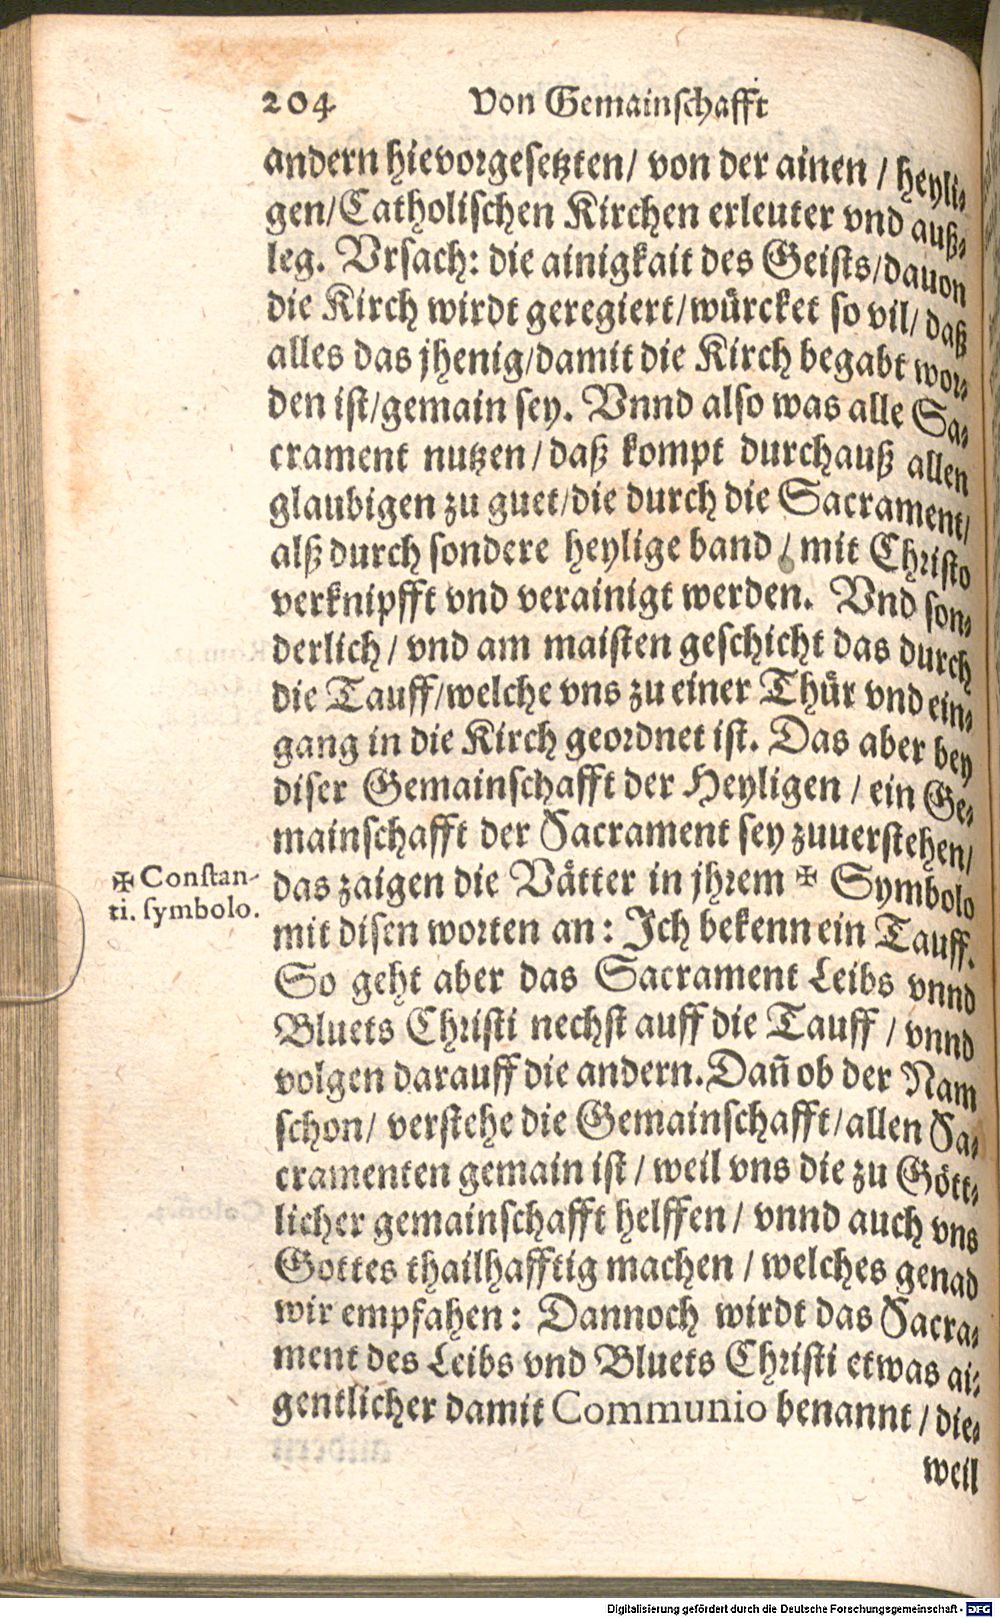 204 Von Gemainschafft
andern hievorgesetzten/ von der ainen / heyli⸗
gen/Catholischen Kirchen erleuter vnd auß⸗
leg. Vrsach: die ainigkait des Geists/dauon
die Kirch wirdt geregiert/würcket so vil/ daß
alles das jhenig/damit die Kirch begabt wor⸗
den ist/gemain sey. Vnnd also was alle Sa⸗
crament nutzen/daß kompt durchauß allen
glaubigen zu guet/die durch die Sacrament/
alß durch sondere heylige band / mit Christo
verknipfft vnd verainigt werden. Vnd son⸗
derlich/ vnd am maisten geschicht das durch
die Tauff/welche vns zu einer Thür vnd ein⸗
gang in die Kirch geordnet ist. Das aber bey
diser Gemainschafft der Heyligen / ein Ge⸗
mainschafft der Sacrament sey zuuerstehen/
das zaigen die Vätter in jhrem ✠ Symbolo
✠ Constan-
ti. symbolo.
mit disen worten an: Ich bekenn ein Tauff.
So geht aber das Sacrament Leibs vnnd
Bluets Christi nechst auff die Tauff / vnnd
volgen darauff die andern. Dañ ob der Nam
schon/ verstehe die Gemainschafft/allen Sa⸗
cramenten gemain ist / weil vns die zu Gött⸗
licher gemainschafft helffen/ vnnd auch vns
Gottes thailhafftig machen / welches genad
wir empfahen: Dannoch wirdt das Sacra⸗
ment des Leibs vnd Bluets Christi etwas ai⸗
gentlicher damit Communio benannt / die⸗
weil
Digitalisierung gefördert durch die Deutsche Forschungsgemeinschaft - DFG